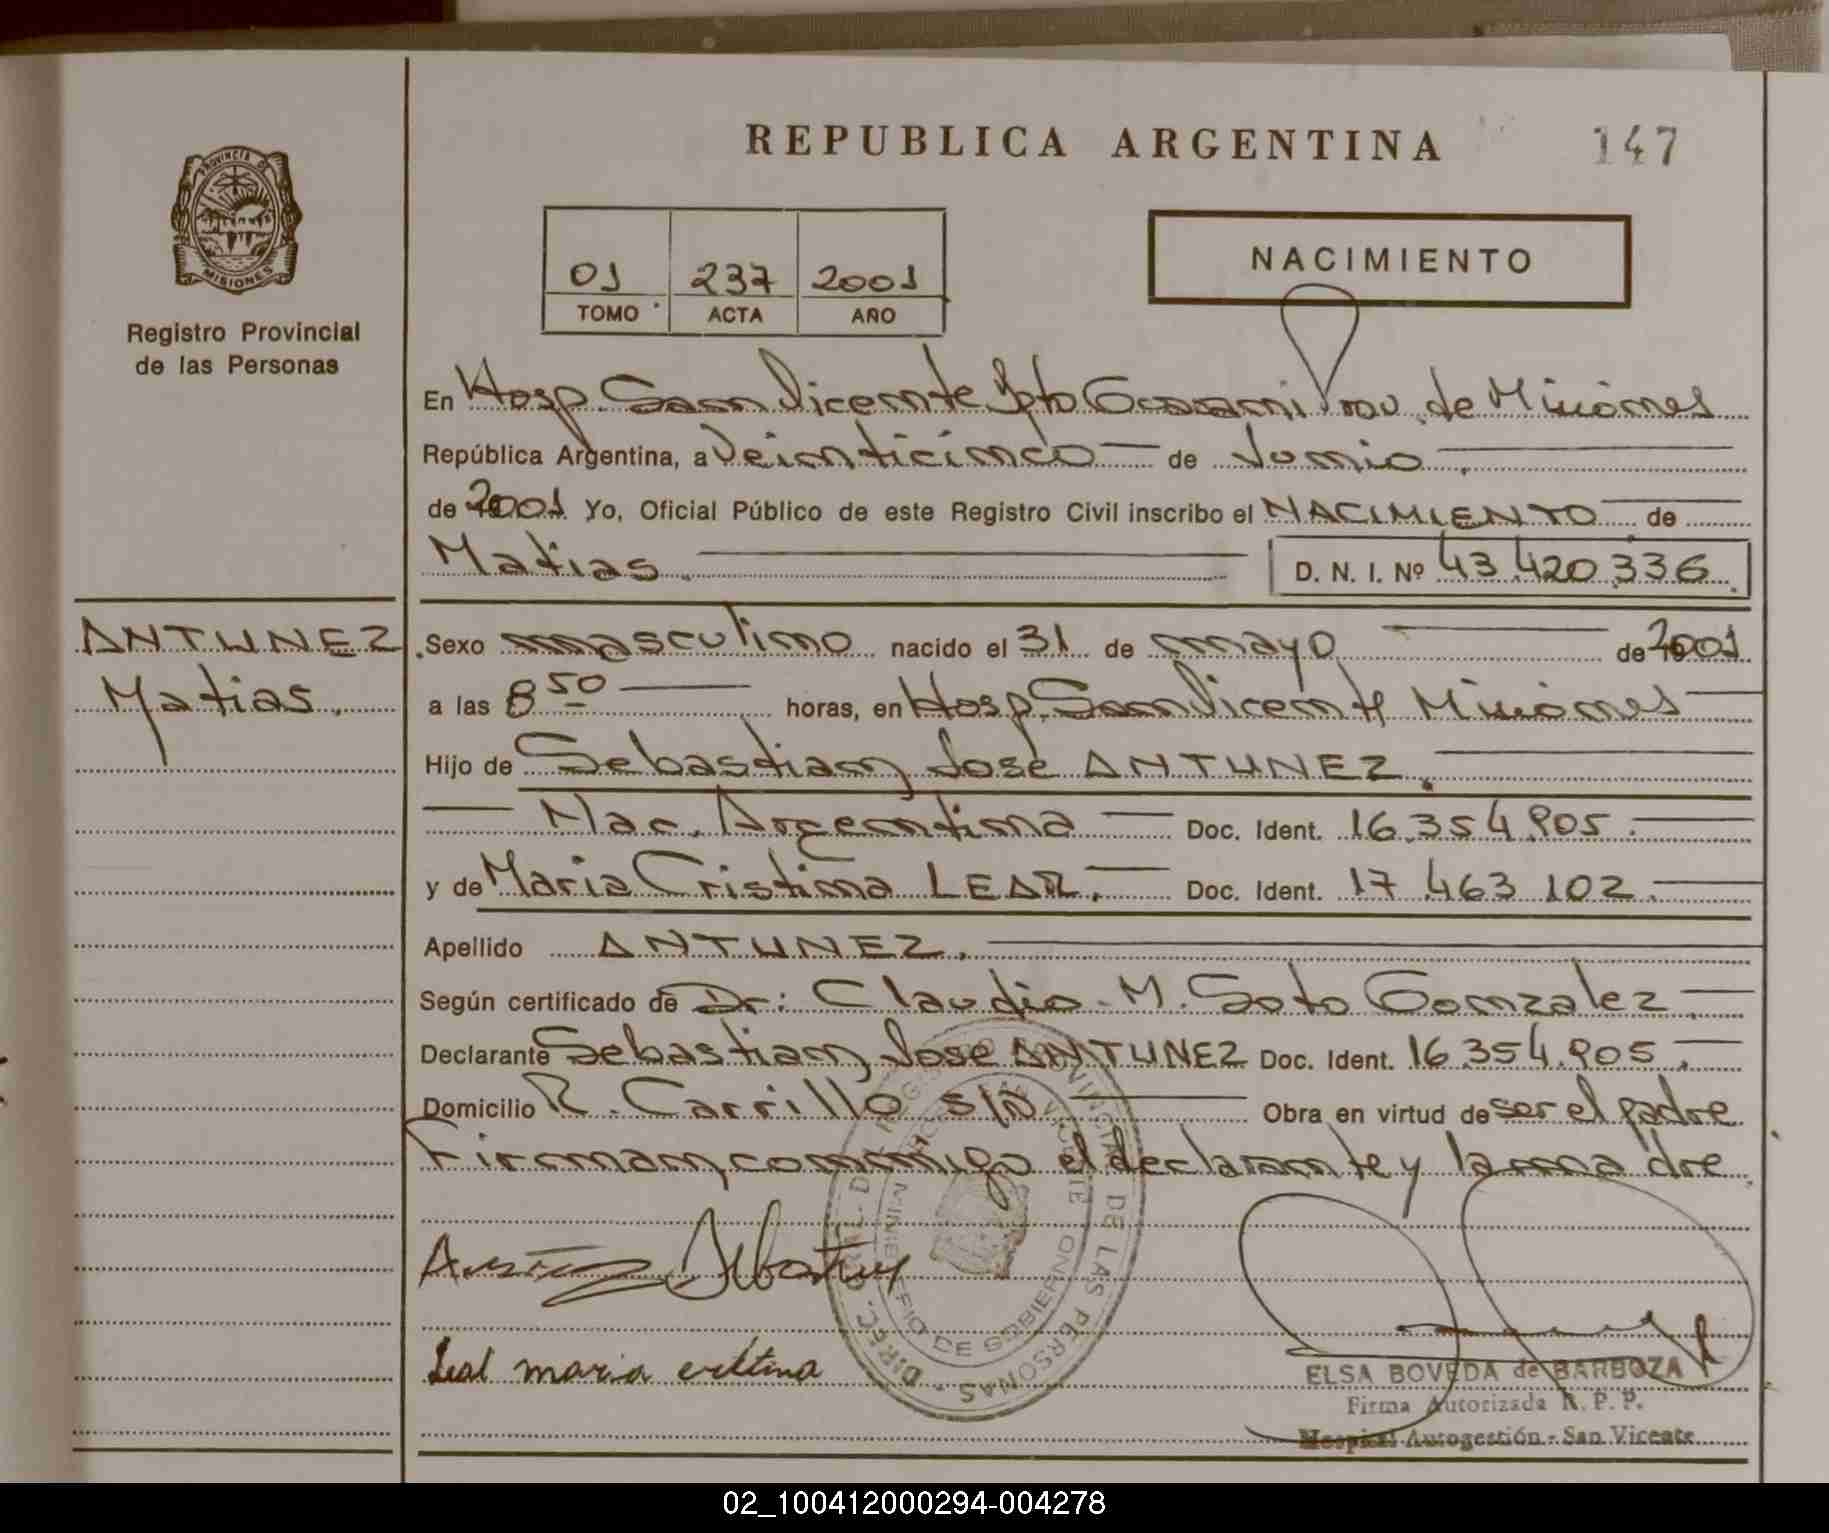 REPUBLICA ARGENTINA 147
PROVINCIA DE
MISIONES
Registro Provincial
de las Personas
01 237 2001
TOMO ACTA AÑO
NACIMIENTO
En Hosp. San Vicente Dpto Guarani Prov. de Misiones
República Argentina, a Veinticinco de Junio
de 2001 Yo, Oficial Público de este Registro Civil inscribo el NACIMIENTO de
Matias. D. N. I. Nº 43.420.336
ANTUNEZ
Matias.
Sexo masculino nacido el 31 de mayo de 2001
a las 8 50 horas, en Hosp. San Vicente Misiones
Hijo de Sebastian Jose ANTUNEZ.
Nac. Argentina Doc. Ident. 16.354.905.
y de Maria Cristina LEAL. Doc. Ident. 17.463.102.
Apellido ANTUNEZ.
Según certificado de Dr: Claudio M. Soto Gonzalez.
Declarante Sebastian Jose ANTUNEZ Doc. Ident. 16.354.905.
Domicilio R. Carrillo s/n Obra en virtud de ser el padre
Firman conmigo el declarante y la madre
DIREC. GRAL. DEL REGISTRO PROVINCIAL DE LAS PERSONAS
MINISTERIO DE GOBIERNO
Leal maria cristina
ELSA BOVEDA de BARBOZA
Firma Autorizada R. P. P.
Hospital Autogestión - San Vicente
02_100412000294-004278